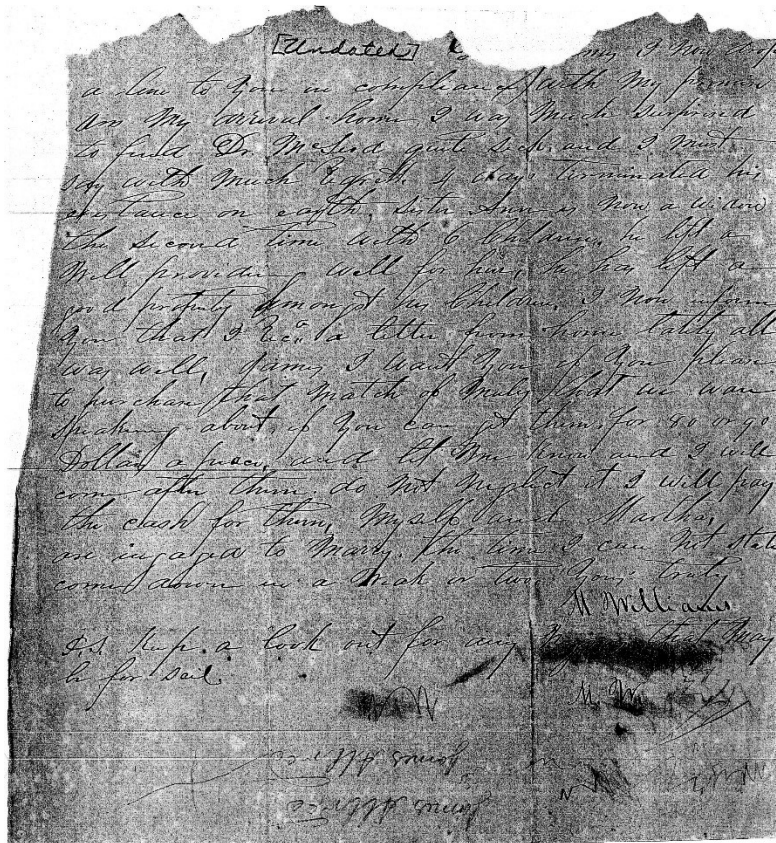 [Undated] I Now Drop
a line to you in compliance with My promis
on My arrival home I was Much surprised
to find Dr McLeod quit sick and I Must
say with Much Regret 4 days terminated his
existance on earth, Sister Ann is Now a widow
the second time with 6 Children, he left a
Will, providing well for her, he has left a
good property Amongst his Children, I Now inform
you that I Recd a letter from home lately all
was well, James I want You if You please
to purchase that Match of Muls that we ware
speaking about if you can get them for 80 or 90
Dollars a piece, and let Me know and I will
come after them, do not Neglect it I will pay
the cash for them, Myself and Martha,
are ingaged to Marry. the time I can Not state
come down in a Weak or two Yours truly
M Williams
P.S. Keep a look out for any that May
be for sail
M. W.
James
James